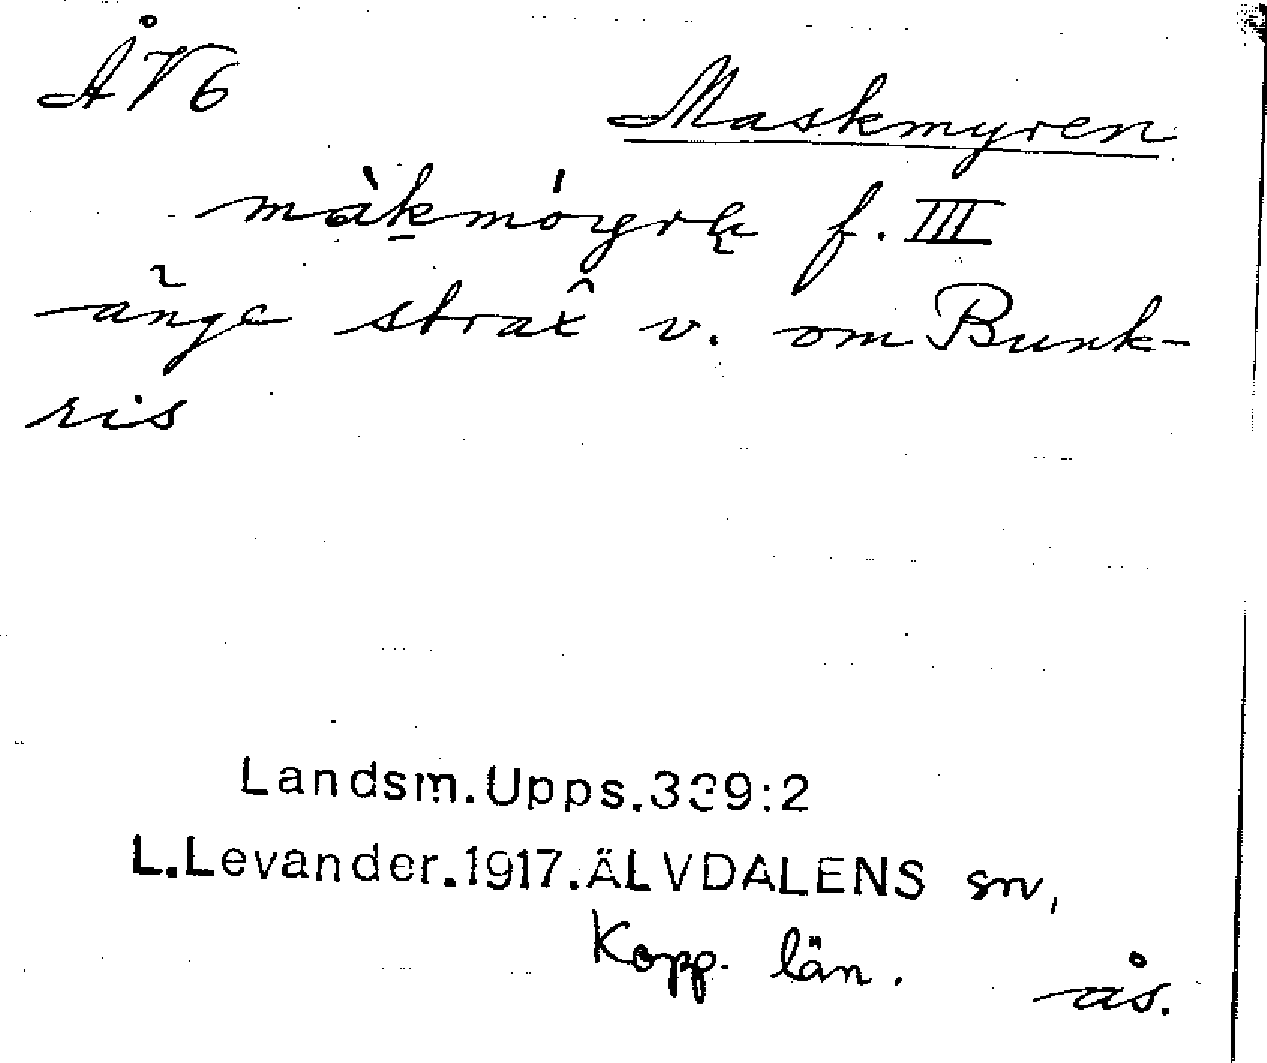 ÅV6
Maskmyren
màkmóyrą f. III
änge strax v. om Bunk-
ris
Landsm.Upps.339:2
L.Levander.1917.ÄLVDALENS sn,
Kopp. län.
ås.